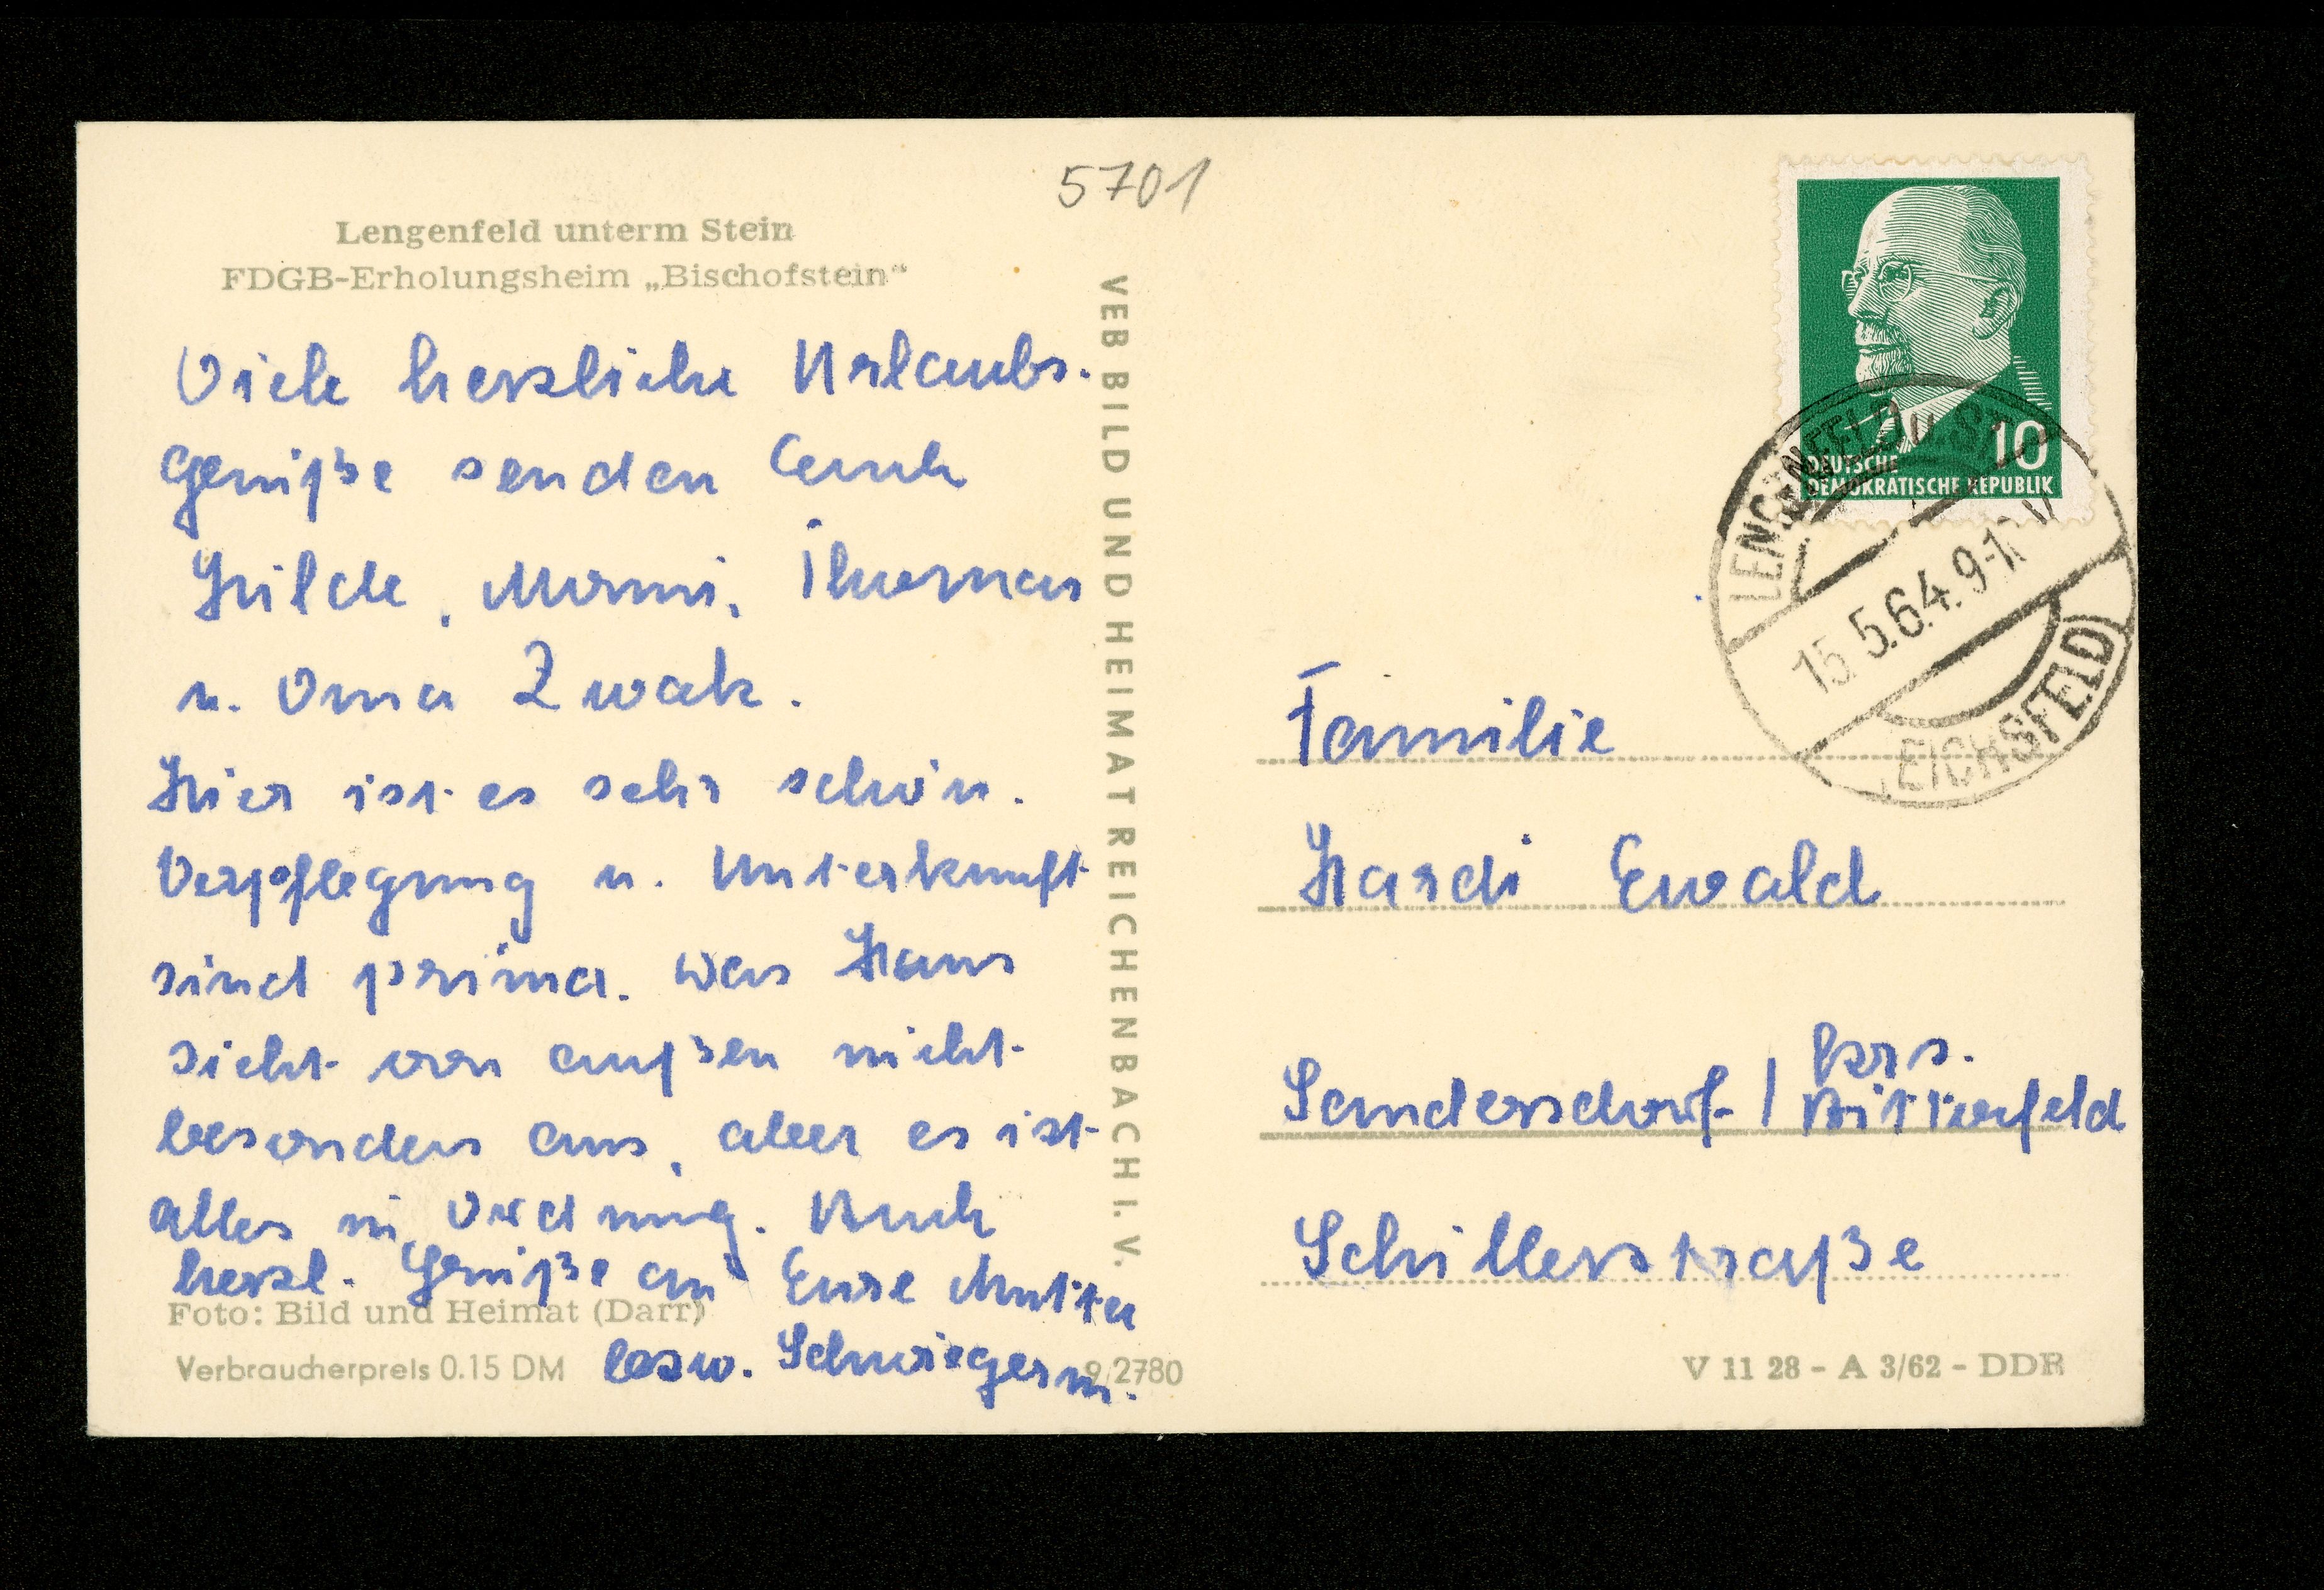 5701
Lengenfeld unterm Stein
FDGB-Erholungsheim „Bischofstein“
Viele herzliche Urlaubs-
grüße senden Euch
Hilde, Mommi, Thomas
u. Oma Zwak.
Hier ist es sehr schön.
Verpflegung u. Unterkunft
sind prima. Das Haus
sieht von außen nicht
besonders aus, aber es ist
alles in Ordnung. Auch
herzl. Grüße an Eure Mutter
bezw. Schwiegerm.
Foto: Bild und Heimat (Darr)
Verbraucherpreis 0.15 DM
9/2780
VEB BILD UND HEIMAT REICHENBACH I. V.
10
DEUTSCHE
DEMOKRATISCHE REPUBLIK
LENGENFELD u. ST.
15.5.64.9-
EICHSFELD
Familie
Hardi Ewald
Sandersdorf / Krs.
Bitterfeld
Schillerstraße
V 11 28 - A 3/62 - DDR